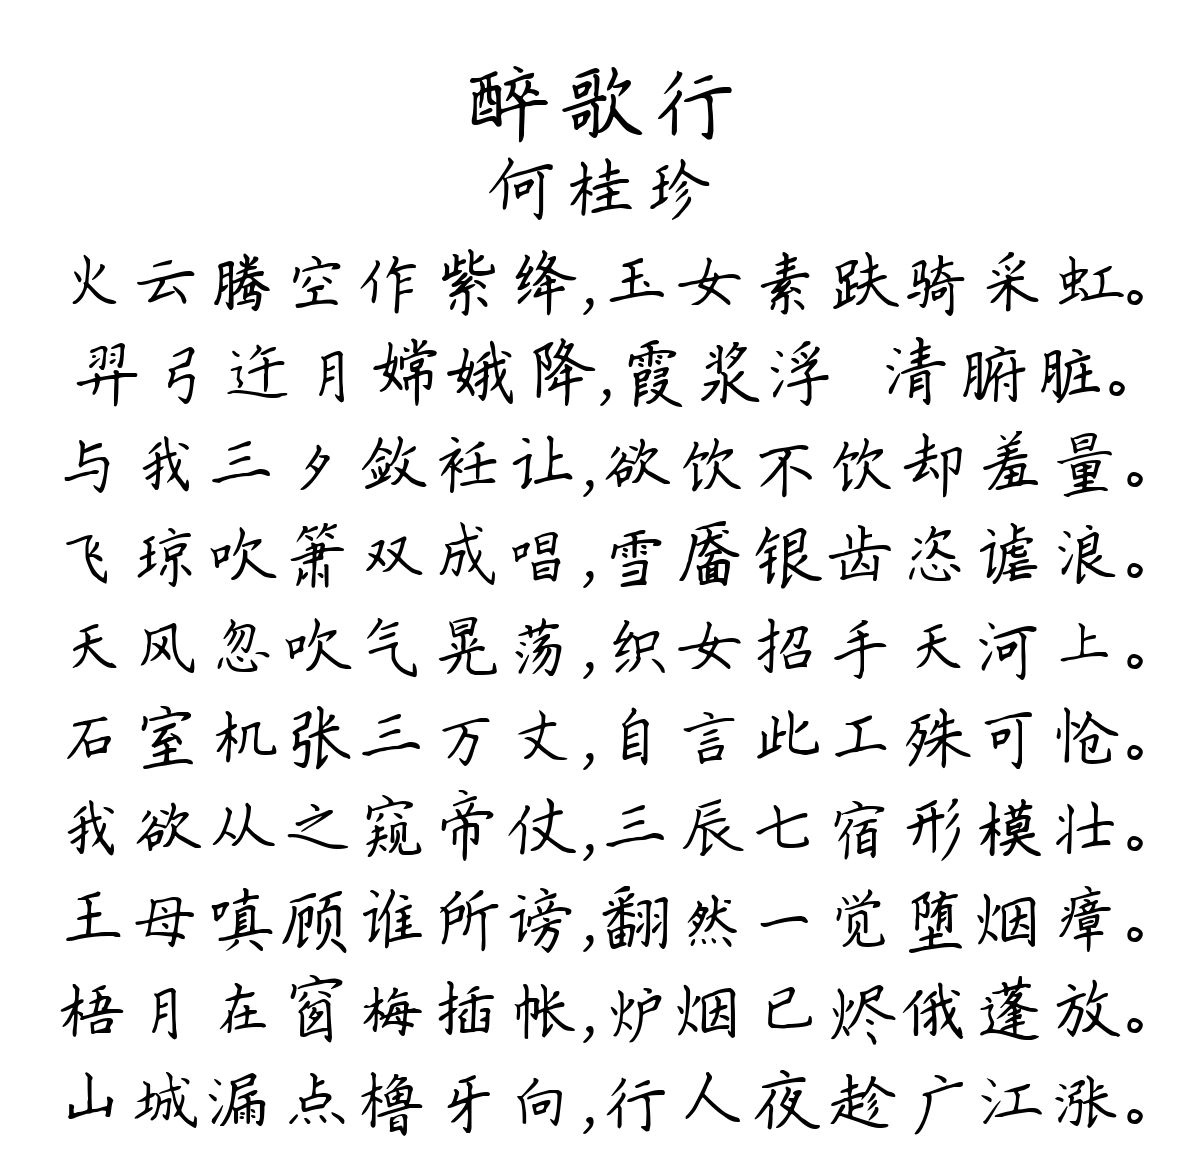 醉歌行
何桂珍
火云腾空作紫绛,玉女素趺骑采虹。
羿弓迕月嫦娥降,霞浆浮 清腑脏。
与我三夕敛衽让,欲饮不饮却羞量。
飞琼吹箫双成唱,雪靥银齿恣谑浪。
天风忽吹气晃荡,织女招手天河上。
石室机张三万丈,自言此工殊可怆。
我欲从之窥帝仗,三辰七宿形模壮。
王母嗔顾谁所谤,翻然一觉堕烟瘴。
梧月在窗梅插帐,炉烟已烬俄蓬放。
山城漏点橹牙向,行人夜趁广江涨。